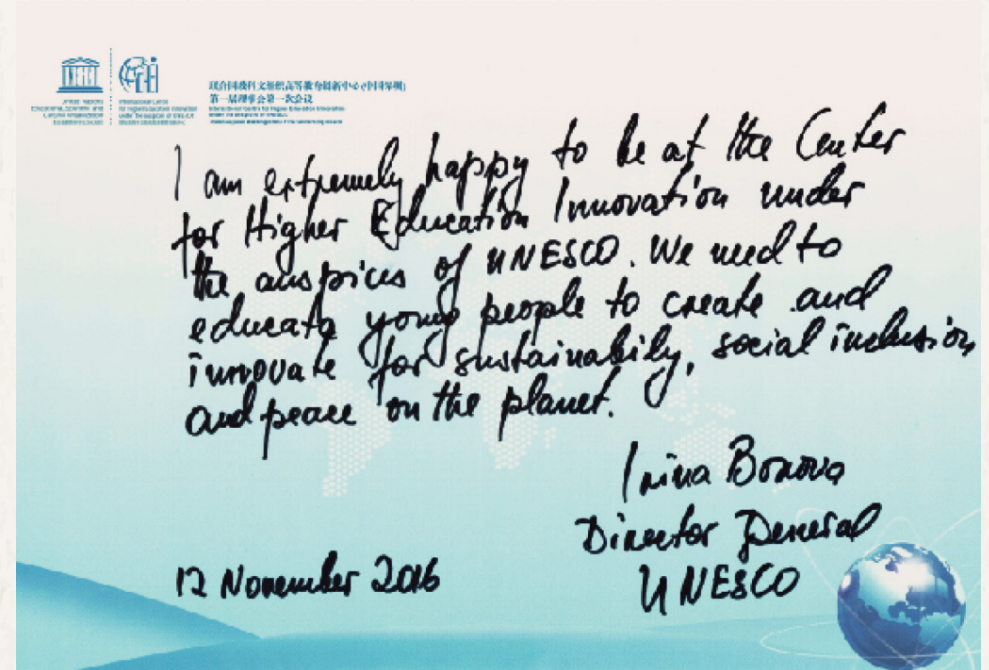 United Nations
Educational, Scientific and
Cultural Organization
International Centre
for Higher Education Innovation
under the auspices of UNESCO
联合国教科文组织高等教育创新中心(中国深圳)
第一届理事会第一次会议
International Centre for Higher Education Innovation
under the auspices of UNESCO
I am extremely happy to be at the Center
for Higher Education Innovation under
the auspices of UNESCO. We need to
educate young people to create and
innovate for sustainability, social inclusion
and peace on the planet.
Irina Bokova
Director General
UNESCO
12 November 2016